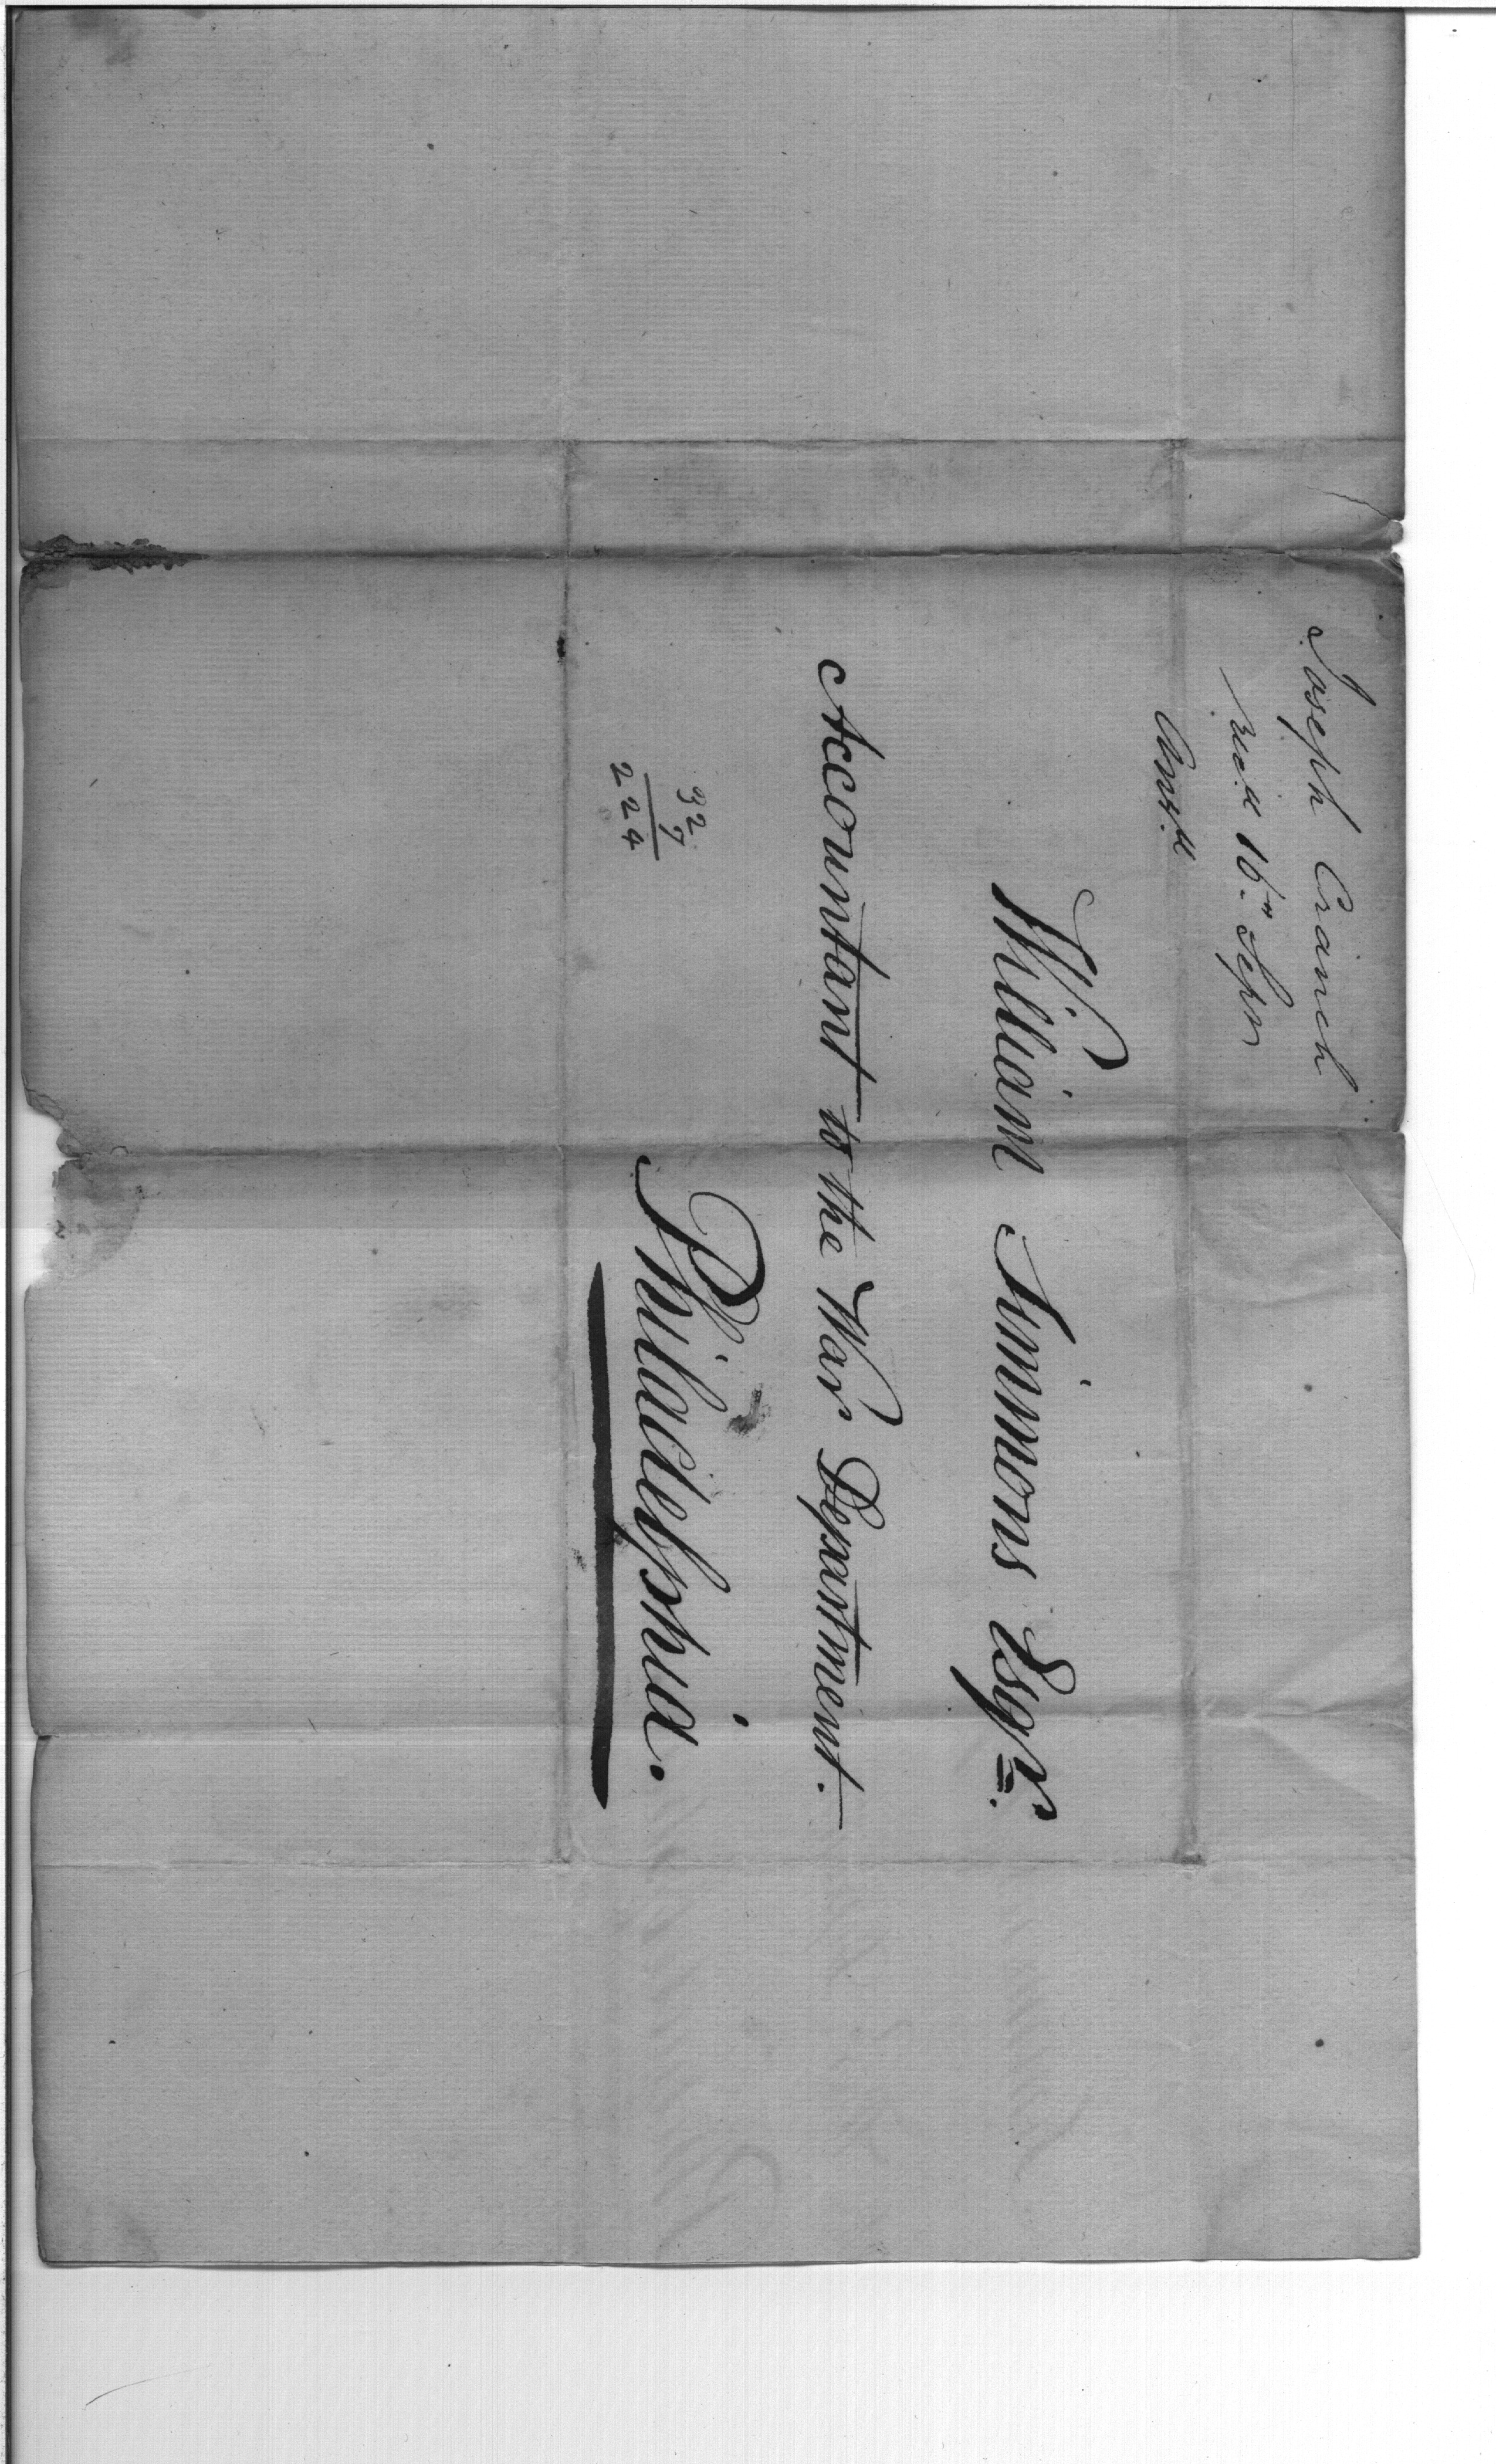 Joseph Cranch
recd 16th Sepr
Answd
William Simmons Esqr.
Accountant to the War Department.
Philadelphia.
32
7
224